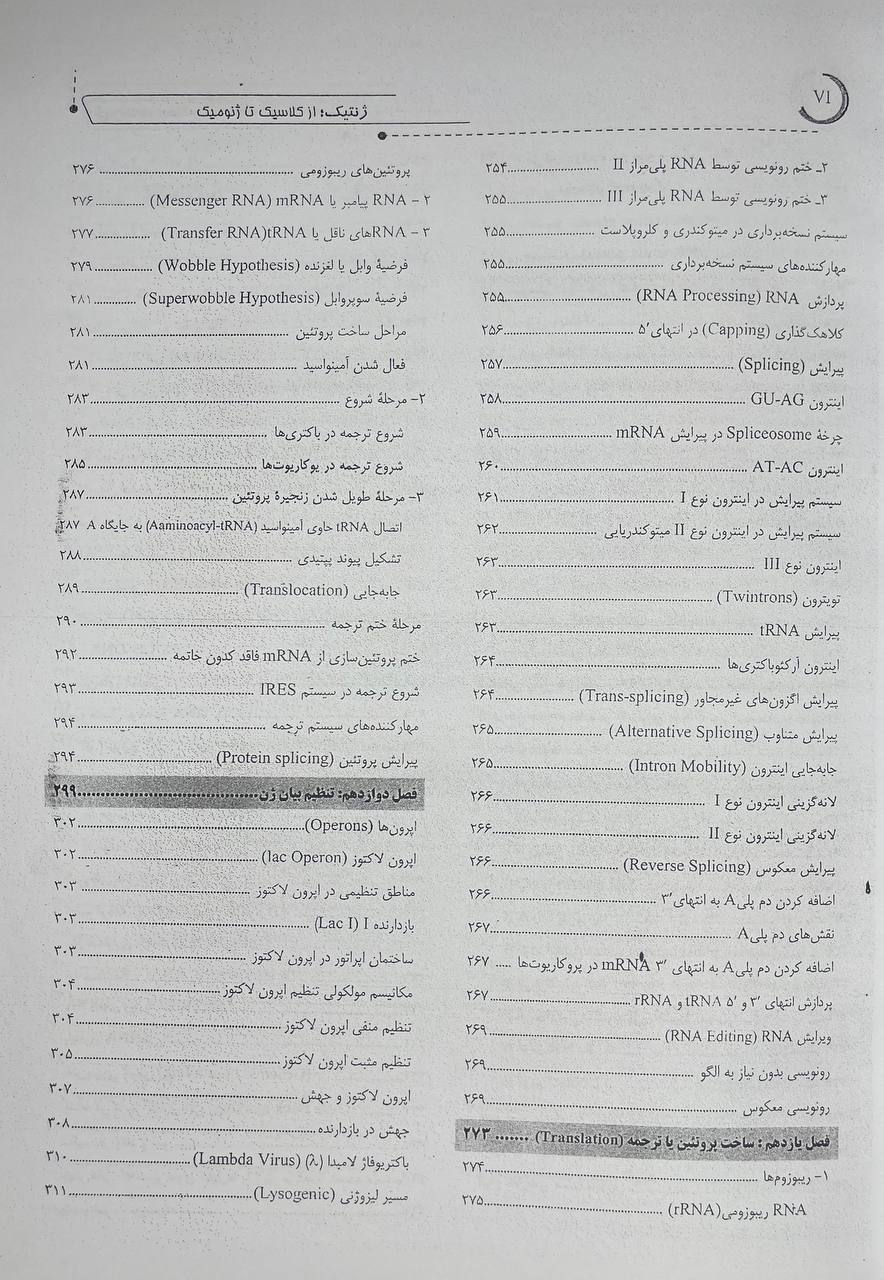 VI
ژنتیک؛ از کلاسیک تا ژنومیک
۲ـ ختم رونویسی توسط RNA پلی‌مراز II ............................۲۵۴
۳ـ ختم رونویسی توسط RNA پلی‌مراز III ............................۲۵۵
سیستم نسخه‌برداری در میتوکندری و کلروپلاست ............................۲۵۵
مهارکننده‌های سیستم نسخه‌برداری ............................۲۵۵
پردازش RNA (RNA Processing) ............................۲۵۵
کلاهک‌گذاری (Capping) در انتهای ۵′ ............................۲۵۶
پیرایش (Splicing) ............................۲۵۷
اینترون GU-AG ............................۲۵۸
چرخهٔ Spliceosome در پیرایش mRNA ............................۲۵۹
اینترون AT-AC ............................۲۶۰
سیستم پیرایش در اینترون نوع I ............................۲۶۱
سیستم پیرایش در اینترون نوع II میتوکندریایی ............................۲۶۲
اینترون نوع III ............................۲۶۳
تویترون (Twintrons) ............................۲۶۳
پیرایش tRNA ............................۲۶۳
اینترون آرکئوباکتری‌ها ............................۲۶۴
پیرایش اگزون‌های غیرمجاور (Trans-splicing) ............................۲۶۴
پیرایش متناوب (Alternative Splicing) ............................۲۶۵
جابه‌جایی اینترون (Intron Mobility) ............................۲۶۵
لانه‌گزینی اینترون نوع I ............................۲۶۶
لانه‌گزینی اینترون نوع II ............................۲۶۶
پیرایش معکوس (Reverse Splicing) ............................۲۶۶
اضافه کردن دم پلی‌A به انتهای ۳′ ............................۲۶۶
نقش‌های دم پلی‌A ............................۲۶۷
اضافه کردن دم پلی‌A به انتهای ۳′ mRNA در پروکاریوت‌ها ..... ۲۶۷
پردازش انتهای ۳′ و ۵′ tRNA و rRNA ............................۲۶۷
ویرایش RNA (RNA Editing) ............................۲۶۹
رونویسی بدون نیاز به الگو ............................۲۶۹
رونویسی معکوس ............................۲۶۹
فصل یازدهم: ساخت پروتئین یا ترجمه (Translation) ....... ۲۷۳
۱- ریبوزوم‌ها ............................۲۷۴
RNA ریبوزومی(rRNA) ............................۲۷۵
پروتئین‌های ریبوزومی ............................ ۲۷۶
۲ - RNA پیامبر یا mRNA (Messenger RNA) ................ ۲۷۶
۳ - RNAهای ناقل یا tRNA(Transfer RNA) ................ ۲۷۷
فرضیهٔ وابل یا لغزنده (Wobble Hypothesis) ................ ۲۷۹
فرضیهٔ سوپروابل (Superwobble Hypothesis) ............. ۲۸۱
مراحل ساخت پروتئین ............................ ۲۸۱
فعال شدن آمینواسید ............................۲۸۱
۲- مرحلهٔ شروع ............................۲۸۳
شروع ترجمه در باکتری‌ها ............................۲۸۳
شروع ترجمه در یوکاریوت‌ها ............................۲۸۵
۳- مرحلهٔ طویل شدن زنجیرهٔ پروتئین ............................۲۸۷
اتصال tRNA حاوی آمینواسید (Aaminoacyl-tRNA) به جایگاه A ۲۸۷
تشکیل پیوند پپتیدی ............................۲۸۸
جابه‌جایی (Translocation) ............................۲۸۹
مرحلهٔ ختم ترجمه ............................۲۹۰
ختم پروتئین‌سازی از mRNA فاقد کدون خاتمه ................ ۲۹۲
شروع ترجمه در سیستم IRES ............................ ۲۹۳
مهارکننده‌های سیستم ترجمه ............................ ۲۹۴
پیرایش پروتئین (Protein splicing) ............................۲۹۴
فصل دوازدهم: تنظیم بیان ژن ............................۲۹۹
اپرون‌ها (Operons) ............................۳۰۲
اپرون لاکتوز (lac Operon) ............................۳۰۲
مناطق تنظیمی در اپرون لاکتوز ............................ ۳۰۳
بازدارنده I (Lac I) ............................۳۰۳
ساختمان اپراتور در اپرون لاکتوز ............................۳۰۳
مکانیسم مولکولی تنظیم اپرون لاکتوز ............................۳۰۴
تنظیم منفی اپرون لاکتوز ............................۳۰۴
تنظیم مثبت اپرون لاکتوز ............................۳۰۵
اپرون لاکتوز و جهش ............................۳۰۷
جهش در بازدارنده ............................۳۰۸
باکتریوفاژ لامبدا (λ) (Lambda Virus) ............................۳۱۰
مسیر لیزوژنی (Lysogenic) ............................۳۱۱